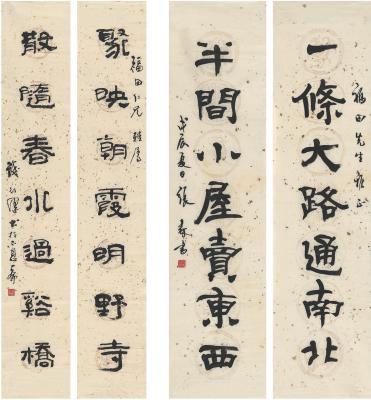 一條大路通南北
福田先生雅正
半間小屋賣東西
戊辰夏日張森書
聚映朝霞明野寺
福田仁兄雅屬
散隨春水過谿橋